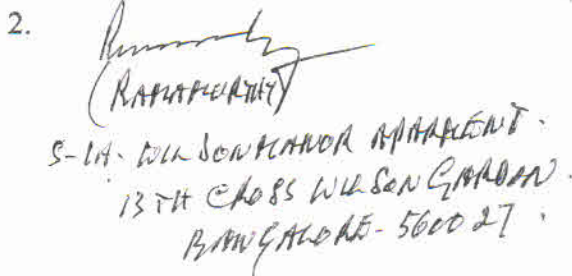 2.
(RAMAMURTHY)
S-1A. WILSON MANOR APARMENT.
13TH CROSS WILSON GARDAN.
BANGALORE - 560027.